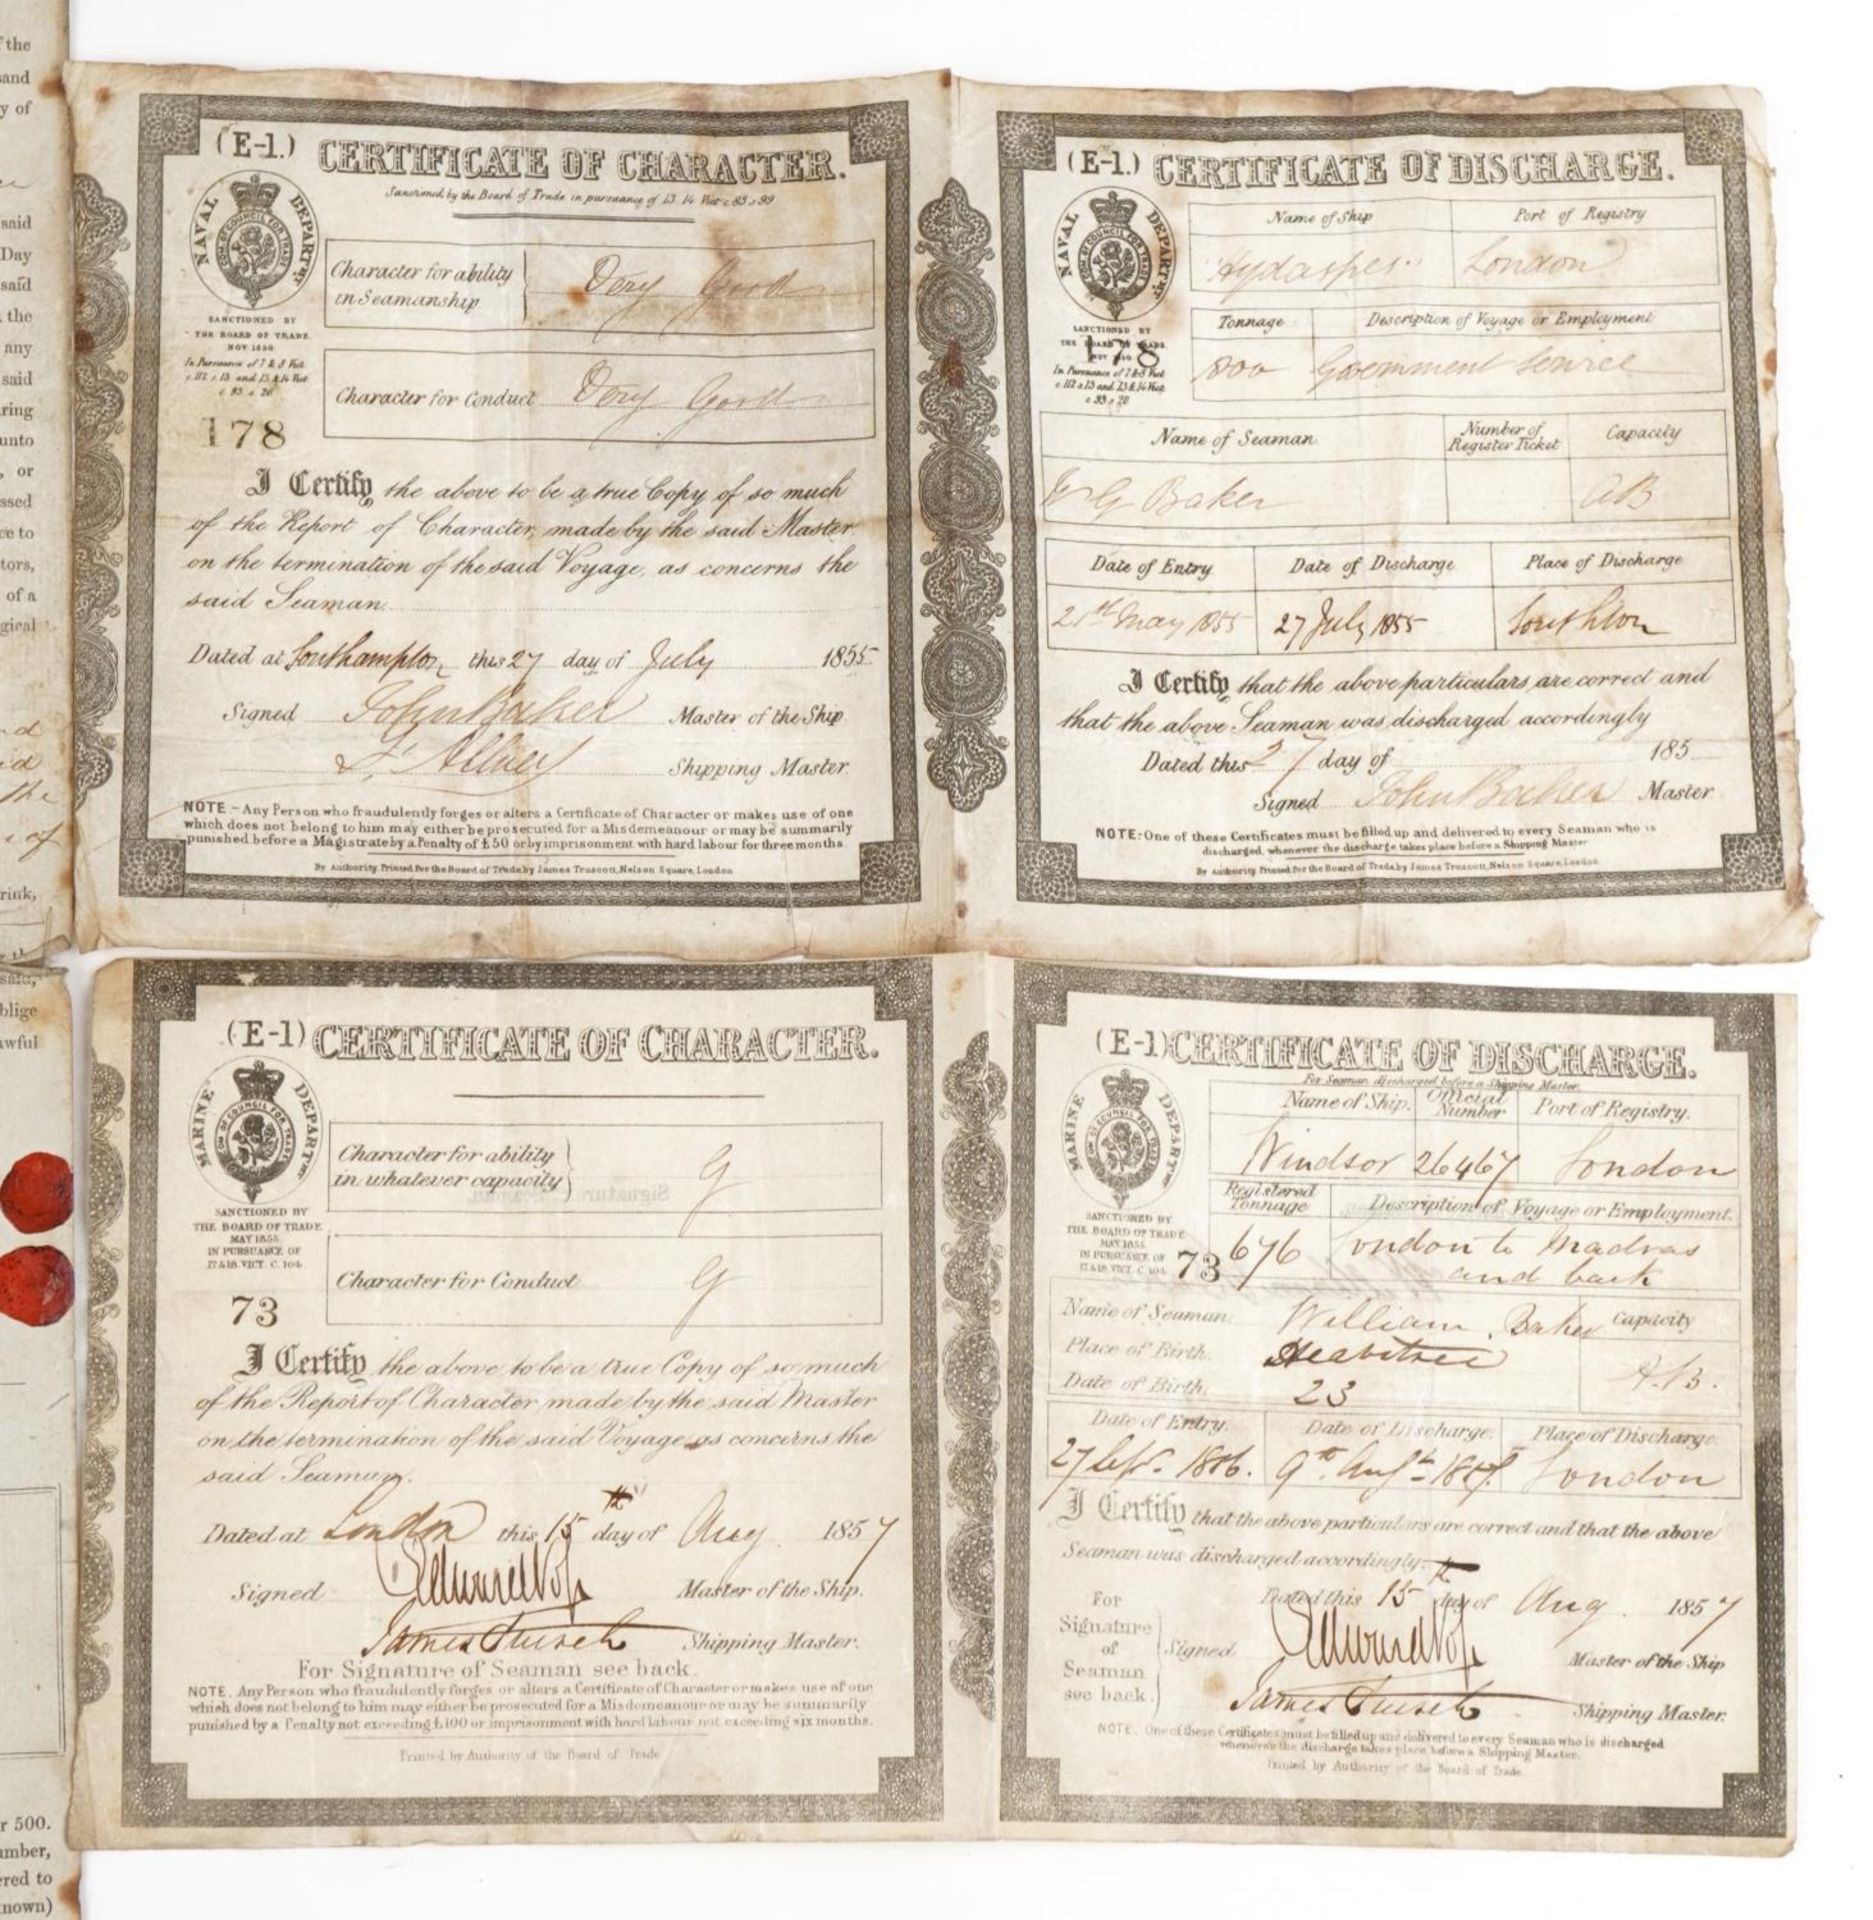 f the
sand
y of
said
Day
said
the
any
said
ring
unto
, or
ssed
ee to
tors,
of a
gical
the
of
rink,
said,
blige
awful
r 500.
umber,
rred to
nown)
(E-1.) CERTIFICATE OF CHARACTER.
Sanctioned by the Board of Trade in pursuance of 13. 14 Vict c 93 s 99
NAVAL DEPARTMT
COM. OF COUNCIL FOR TRADE
SANCTIONED BY
THE BOARD OF TRADE
NOV 1850
In Pursuance of 7 & 8 Vict
c.112 s.13 and 13 & 14 Vict
c 93 s 20
178
Character for ability
in Seamanship
Very Good
Character for Conduct Very Good
I Certify the above to be a true Copy of so much
of the Report of Character, made by the said Master
on the termination of the said Voyage, as concerns the
said Seaman.
Dated at Southampton this 27 day of July 1855
Signed John Baker Master of the Ship
Shipping Master.
NOTE - Any Person who fraudulently forges or alters a Certificate of Character or makes use of one
which does not belong to him may either be prosecuted for a Misdemeanour or may be summarily
punished before a Magistrate by a Penalty of £50 or by imprisonment with hard labour for three months
By Authority Printed for the Board of Trade by James Truscott, Nelson Square, London
(E-1.) CERTIFICATE OF DISCHARGE.
NAVAL DEPARTMT
COM. OF COUNCIL FOR TRADE
SANCTIONED BY
THE BOARD OF TRADE
NOV 1850
178
In Pursuance of 7 & 8 Vict
c 112 s 13 and 13 & 14 Vict
c 93 s 20
Name of Ship Port of Registry
Hydaspes London
Tonnage Description of Voyage or Employment
800 Government Service
Name of Seaman Number of Register Ticket Capacity
W G Baker AB
Date of Entry Date of Discharge Place of Discharge
21st May 1855 27 July 1855 Southton
I Certify that the above particulars are correct and
that the above Seaman was discharged accordingly
Dated this 27 day of 185
Signed John Baker Master
NOTE: One of these Certificates must be filled up and delivered to every Seaman who is
discharged, whenever the discharge takes place before a Shipping Master
By Authority Printed for the Board of Trade by James Truscott, Nelson Square, London
(E-1) CERTIFICATE OF CHARACTER.
MARINE DEPARTMT
COM OF COUNCIL FOR TRADE
SANCTIONED BY
THE BOARD OF TRADE
MAY 1855
IN PURSUANCE OF
17 & 18. VICT. C. 104.
73
Character for ability
in whatever capacity
G
Character for Conduct G
I Certify the above to be a true Copy of so much
of the Report of Character, made by the said Master
on the termination of the said Voyage as concerns the
said Seaman.
Dated at London this 15th day of Aug 1857
Signed Master of the Ship.
James Shipping Master.
For Signature of Seaman see back.
NOTE. Any Person who fraudulently forges or alters a Certificate of Character or makes use of one
which does not belong to him may either be prosecuted for a Misdemeanour or may be summarily
punished by a Penalty not exceeding £100 or imprisonment with hard labour not exceeding six months.
Printed by Authority of the Board of Trade
(E-1) CERTIFICATE OF DISCHARGE.
For Seaman discharged before a Shipping Master.
MARINE DEPARTMT
COM OF COUNCIL FOR TRADE
SANCTIONED BY
THE BOARD OF TRADE
MAY 1855
IN PURSUANCE OF
17 & 18. VICT. C 104.
73
Name of Ship. Official Number Port of Registry.
Windsor 26467 London
Registered Tonnage Description of Voyage or Employment.
676 London to Madras
and back
Name of Seaman. William Baker Capacity
Place of Birth. Heavitree
A.B.
Date of Birth. 23
Date of Entry. Date of Discharge. Place of Discharge
27 Sepr. 1856. 9th Augt 1857. London
I Certify that the above particulars are correct and that the above
Seaman was discharged accordingly.
Dated this 15th day of Aug. 1857
For
Signature
of
Seaman
see back.
Signed Master of the Ship
James Shipping Master.
NOTE. One of these Certificates must be filled up and delivered to every Seaman who is discharged
whenever the discharge takes place before a Shipping Master.
Printed by Authority of the Board of Trade